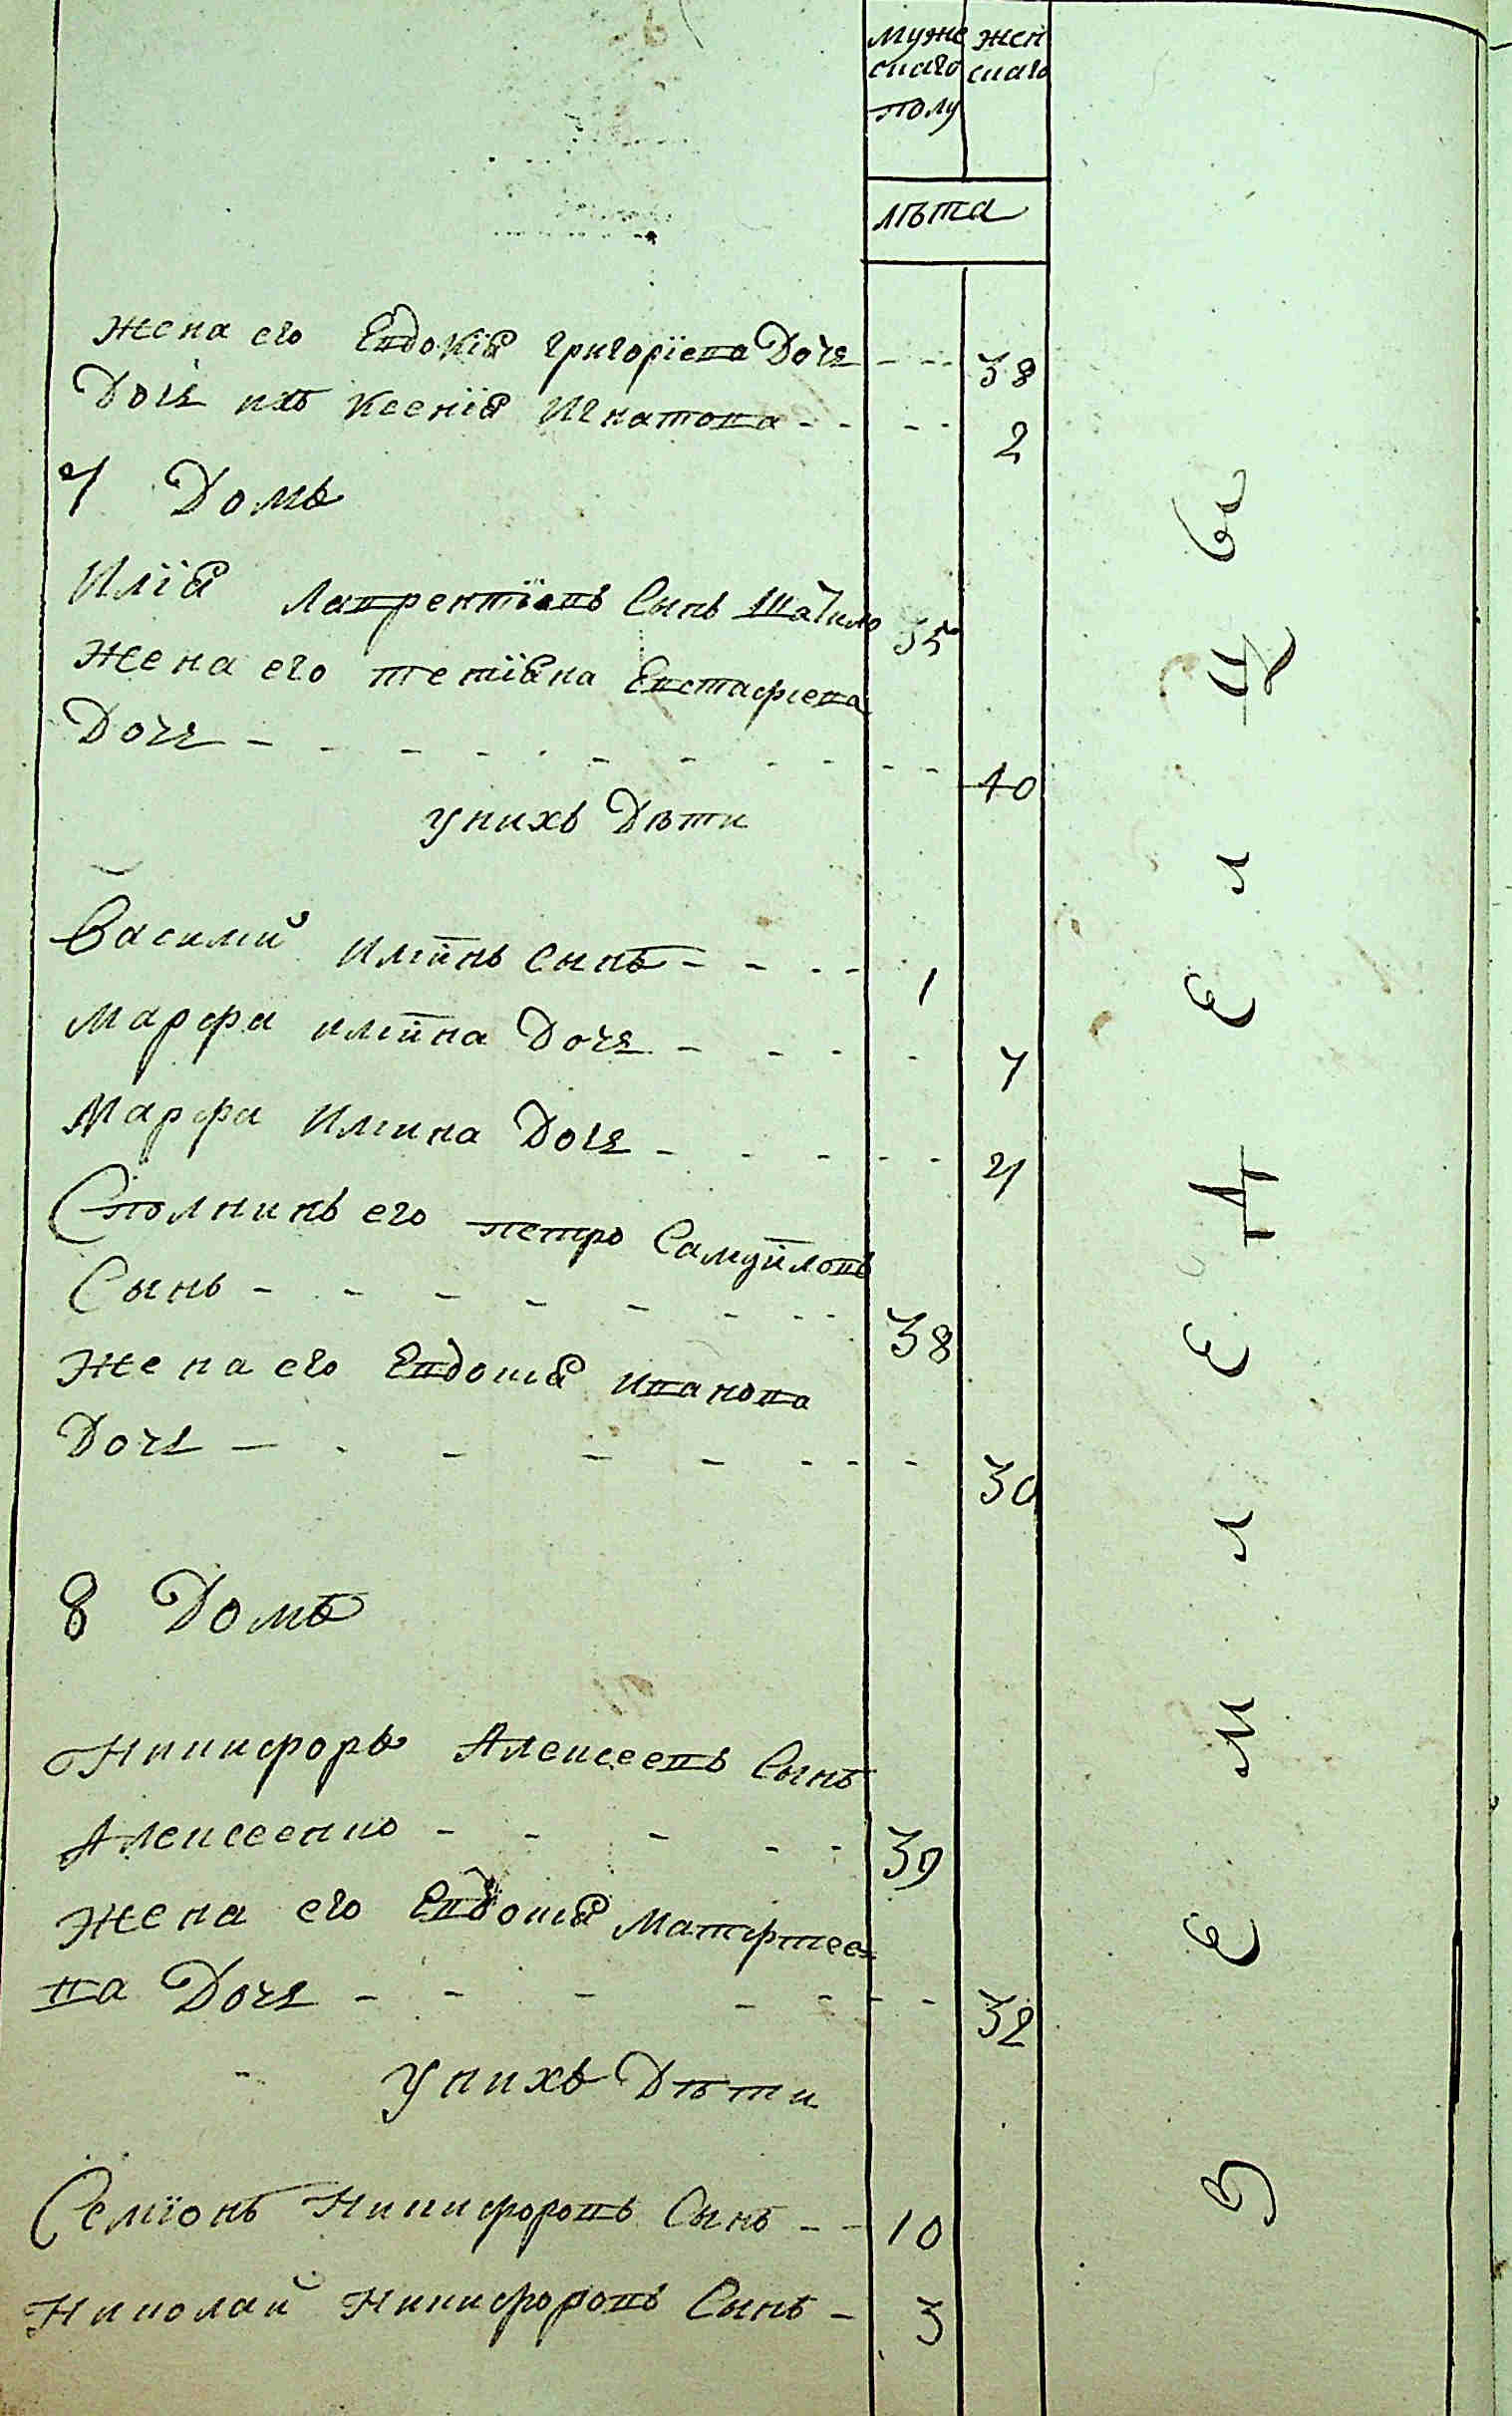 муже жен
скаго скаго
полу
лѣта
Жена его Евдокія Григоріева Дочь - - - 38
Дочь ихъ Ксенія Игнатова - - - - 2
7 Домъ
Илія Лаврентіевъ Сынъ Шатило 35
Жена его тетіяна Евстафиева
Дочь - - - - - - - - - - 40
У нихъ Дѣти
Василий Илиинъ сынъ - - - - 1
Марфа илиина Дочь - - - - 7
Марфа Илиина Дочь - - - - - 4
Столникъ его петро Самуйловъ
Сынъ - - - - - - - - 38
Жена его Евдокия иванова
Дочь - - - - - - - - 30
8 Домъ
Никифоръ Алексеевъ Сынъ
Алексеенко - - - - - 39
Жена его Евдокия Матфтее-
ва Дочь - - - - - - - 32
У нихъ Дѣти
Семіонъ Никифоровъ Сынъ - - 10
Николай Никифоровъ Сынъ - 3
Земледелцы